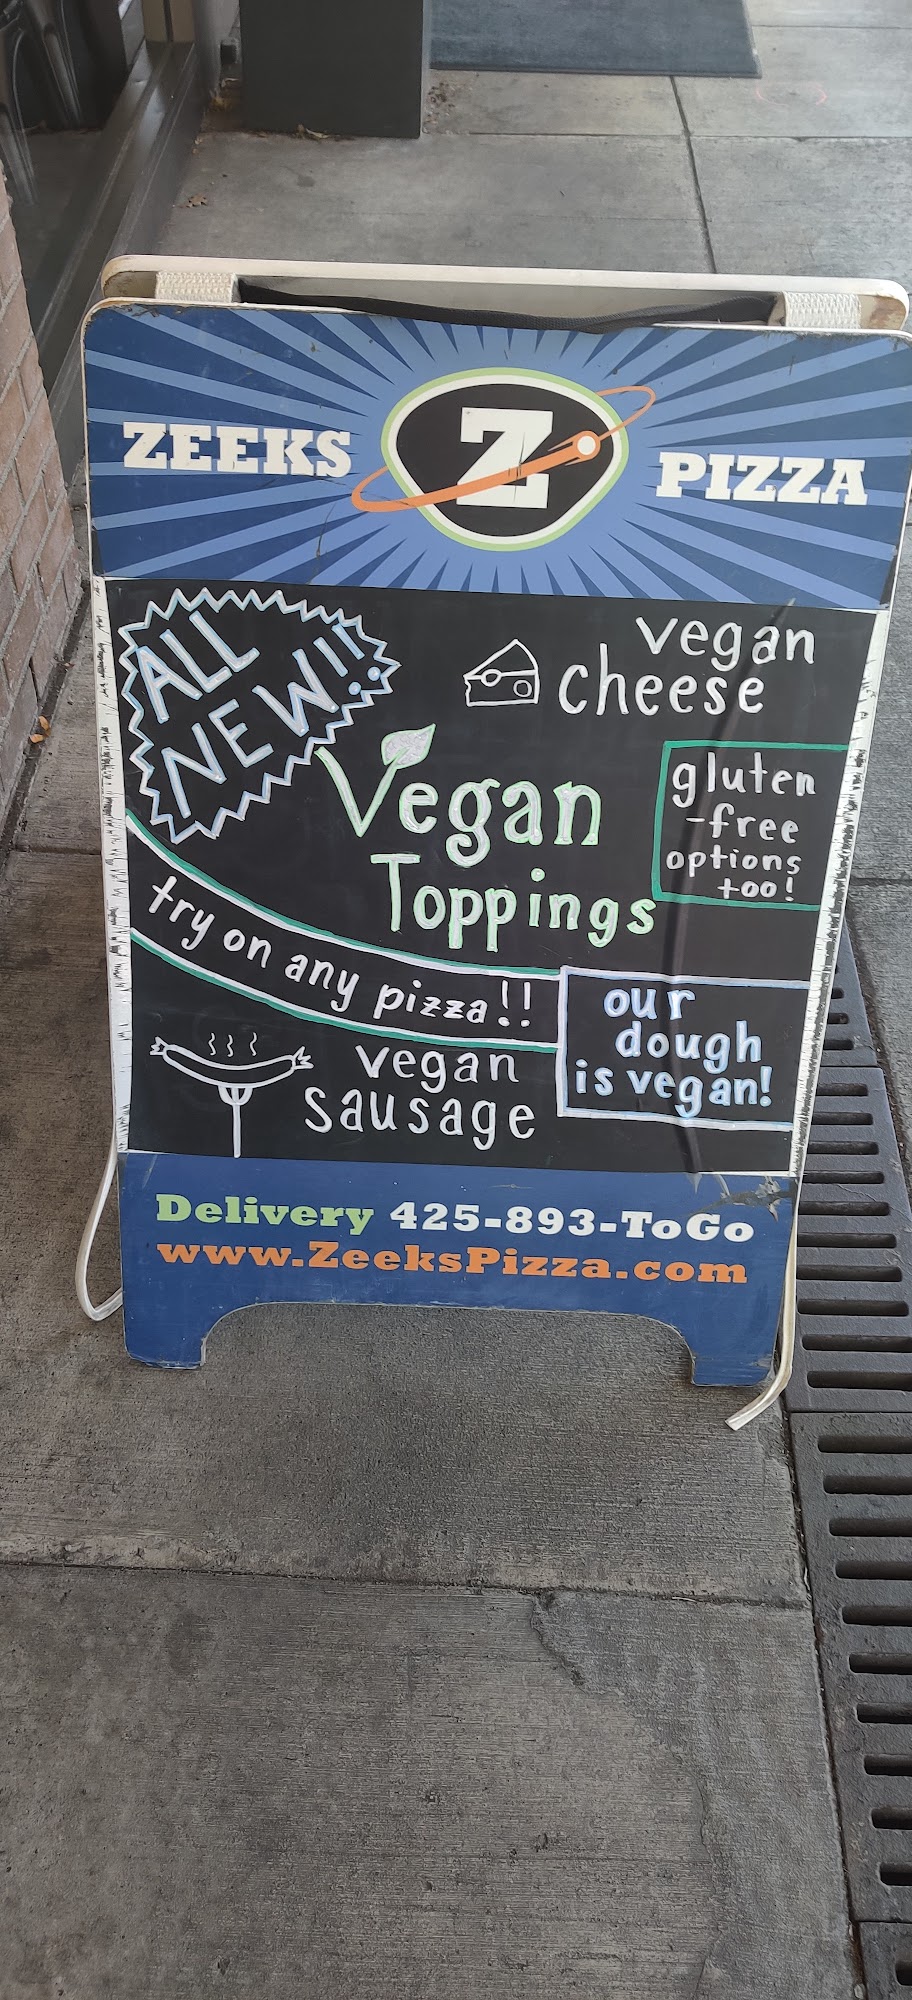 ZEEKS Z PIZZA
ALL
NEW!!
vegan
cheese
Vegan
Toppings
gluten
-free
options
too!
try on any pizza!!
our
dough
is vegan!
vegan
sausage
Delivery 425-893-ToGo
www.ZeeksPizza.com